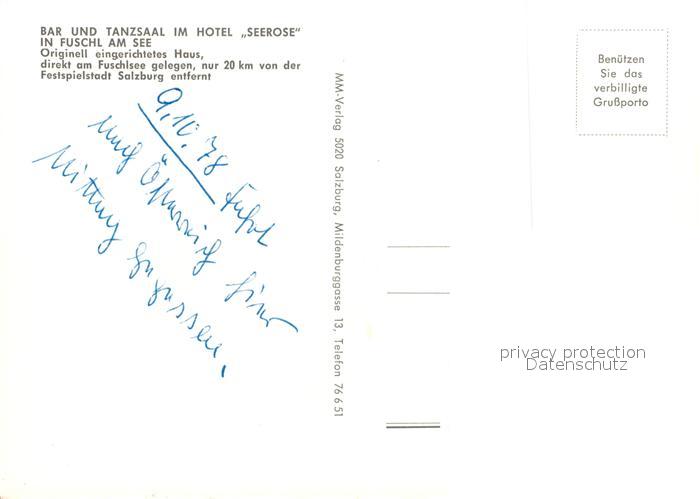 BAR UND TANZSAAL IM HOTEL „SEEROSE"
IN FUSCHL AM SEE
Originell eingerichtetes Haus,
direkt am Fuschlsee gelegen, nur 20 km von der
Festspielstadt Salzburg entfernt
9.10.78 Fahrt
nach Österreich hier
Mittag gegessen.
MM-Verlag 5020 Salzburg, Mildenburggasse 13, Telefon 76 6 51
Benützen
Sie das
verbilligte
Grußporto
privacy protection
Datenschutz